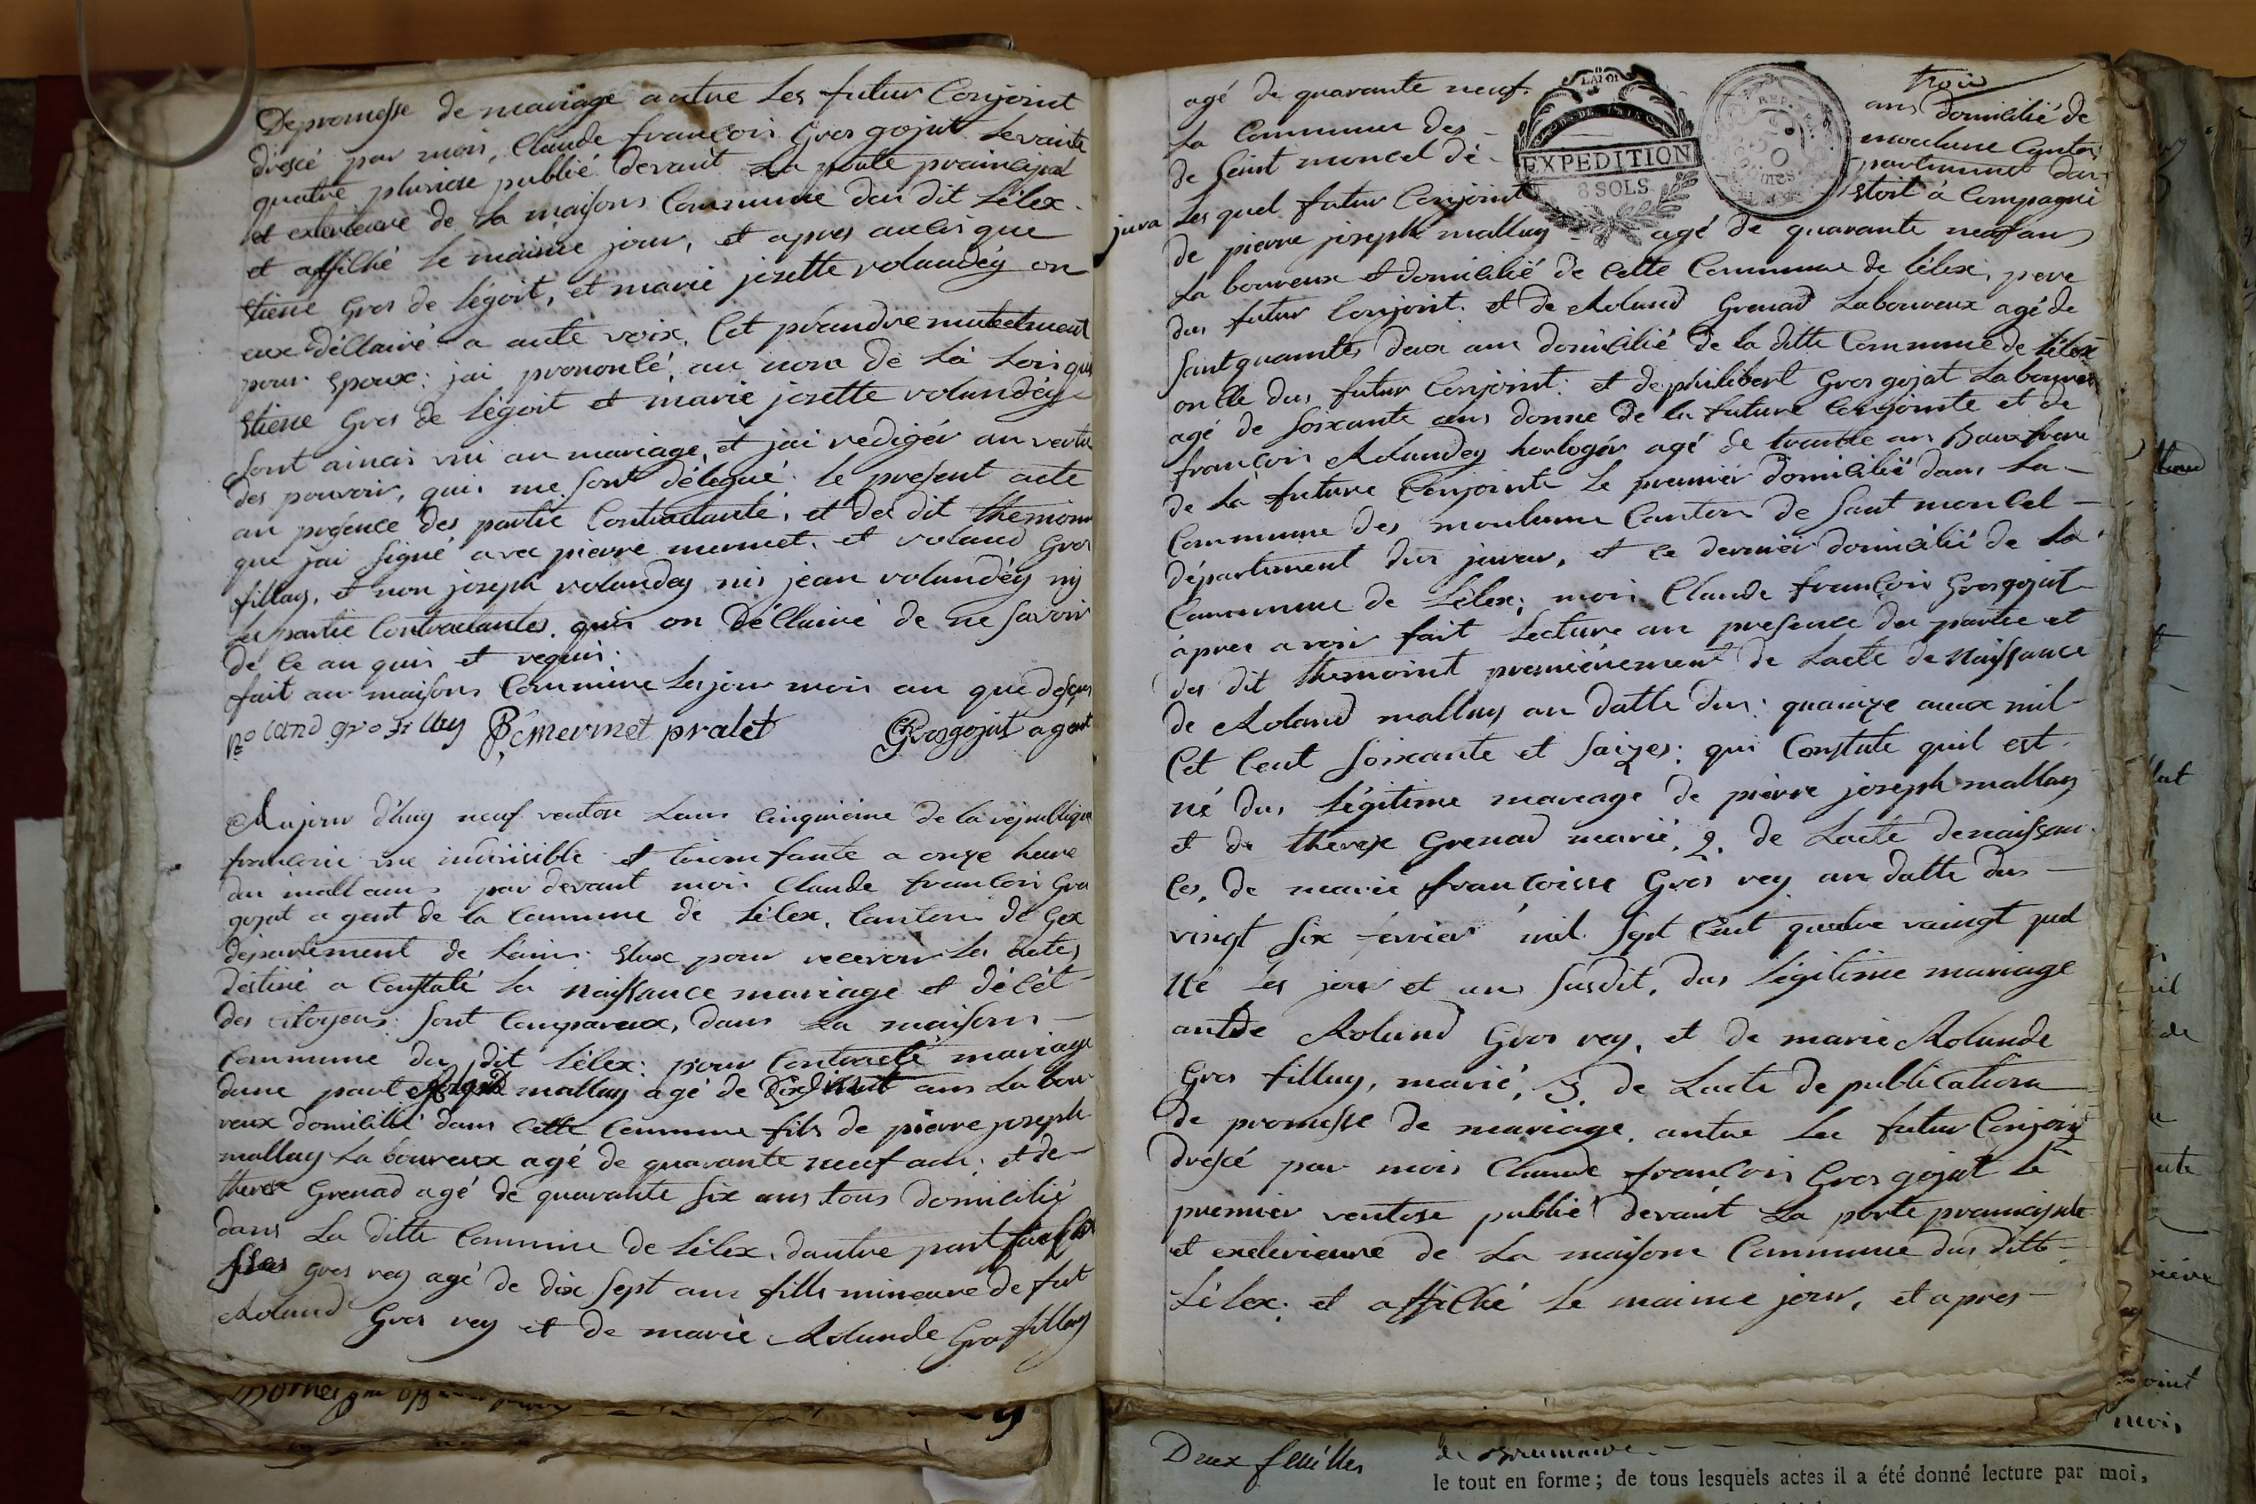 De promesse de mariage antre Les futur Conjoint
dresé par mois, Claude francois Gros gojat Le vainte
quatre pluviose publié devant La porte praincipal
et exterieure de La maisons Commune du dit Lélex.
et affiché Le maime jour, et apres aucis que
Etiene Gros de Légoit, et marie josette rolandéy on
eux déClairé a aute voix, Cet prandre mutelment
pour Epoux: jai prononcé, au nom de La Loi que
Etiene Gros de Légoit et marie josette rolandéy
sont ainci uni au mariage, et jai redigér an vertu
des pouvoir, quis me sont délegué. le present acte
an présence des partie Contractante, et des dit themoin
que jai signé avec pierre mermet, et roland Gros
fillay, et non joseph rolandey nis jean rolandéy ny
les partie Contractantes quis on déClairé de ne savoir
dé Ce an quis et requis.
fait au maisons Commune Les jour mois an que desus
roland gro fillay mermet pralet Grosgojat agent
Aujour d'huy neuf ventose Lans Cinquieme de la republique
francoise une indivisible et triomfante a onze heure
du mattains par devant mois Claude francois Gros
gojat agent de la Commune de Lélex, Canton de Gex
departement de Lain: Elux pour recevoir Les actes
déstiné a Constaté La naissance mariage et décét
des citoyens: sont Compareux, dans La maisons
Commune du dit Lélex: pour Contracté mariage
dune part mallay agé de ans La bou
reux domicilié dans Cette Commune fils de pierre joseph
mallay La boureux agé de quarante neuf ans: et de
therese Grenad agé de quarante six ans tous domicilié
dans La ditte Commune de Lélex, dautre part
Gros rey agé de dix sept ans fille mineure de fut
Roland Gros rey et de marie Rolande Gros fillay
agé de quarante neuf. trois
ans domicilié de
La Commune des moulune Canton
de saint moncel dé partement du
jura Les quel futur Conjoint Etoit à Compagné
LA LOI
EXPEDITION
8 SOLS.
REP. FRA.
de pierre joseph mallay agé de quarante neuf ans
La boureux et domicilié de Cette Commune de Lélex, pere
dus futur Conjoint. et de Roland Grenad Laboureux agé de
santquamtes deux ans domicilié de la ditte Commune de Lélex
oncle dus futur Conjoint: et de philibert Gros gojat Laboureu
agé de soixante ans donne de la future Conjointe et de
francois Rolandey horlogér agé de trante ans Baux frere
de La future Conjointe Le premier domicilié dans La
Commune des moulune Canton de Saut moncel
département dus jurar, et ce dernier domicilié de La
Commune de Lélex; mois Claude francois Grosgojat
àpres avoir fait Lecture an presence des partie et
des dit themoint premiérement de Lacte de Naissance
de Roland mallay an datte dus: quainze auux mil
Cet Cent soixante et saizes: qui Constate quil est
né dus Légitime mareage de pierre joseph mallay
et de therese Grenad marié, 2. de Lacte denaissan
ces, de marie francoisse Gros rey an datte dus
vingt six fevrier mil sept Cent quatre vaingt
né Les jour et ans susdit, dus Légitime mariage
antde Roland Gros rey, et de marie Rolande
Gros fillay, marié, 3. de Lacte de publication
de promesse de mariage. antre Les futur Conjoint
dresé par mois Claude francois Gros gojat Le
premier ventose publié devant La porte prancipale
et exelerieure de La maisom Commune dus ditt
Lélex: et affiché Le maime jour, et apres
Deux feuilles
de Brumaire
le tout en forme; de tous lesquels actes il a été donné lecture par moi,